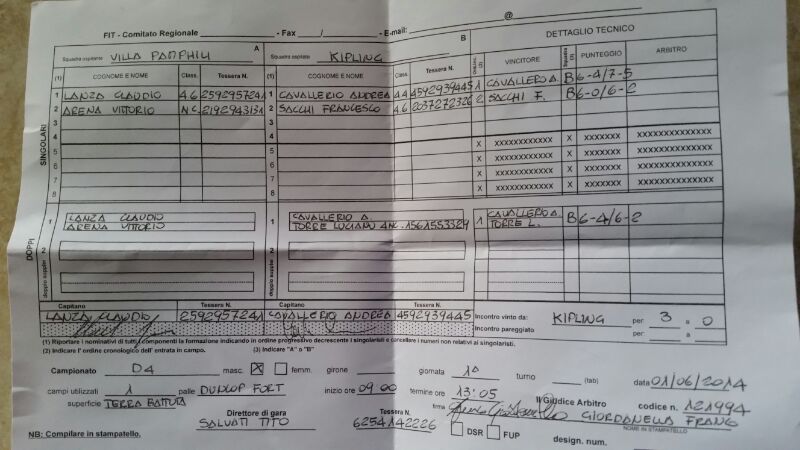 @
FIT - Comitato Regionale - Fax / - E-mail:
A B DETTAGLIO TECNICO
Squadra ospitante VILLA PAMPHILI Squadra ospitata KIPLING
(1) COGNOME E NOME Class. Tessera N. (1) COGNOME E NOME Class. Tessera N. (2) VINCITORE Squadra (3) PUNTEGGIO ARBITRO
SINGOLARI
1 LANZA CLAUDIO 4.6 259295724A 1 CAVALLERIO ANDREA 4.4 4592939445 1 CAVALLERIO A. B 6-4/7-5
2 ARENA VITTORIO N.C. 2192943131 2 SACCHI FRANCESCO 4.6 2037272326 2 SACCHI F. B 6-0/6-2
3 3
4 4 X XXXXXXXXXXXX X XXXXXXX XXXXXXXXXXXX
5 5 X XXXXXXXXXXXX X XXXXXXX XXXXXXXXXXXX
6 6 X XXXXXXXXXXXX X XXXXXXX XXXXXXXXXXXX
7 7 X XXXXXXXXXXXX X XXXXXXX XXXXXXXXXXXX
8 8
DOPPI
1 LANZA CLAUDIO 1 CAVALLERIO A. 1 CAVALLERIO A. B 6-4/6-2
ARENA VITTORIO TORRE LUCIANO 4NC. 1561553324 TORRE L.
2 2
doppio suppl. doppio suppl.
Capitano Tessera N. Capitano Tessera N.
LANZA CLAUDIO 259295724A CAVALLERIO ANDREA 4592939445 Incontro vinto da: KIPLING per 3 a 0
Incontro pareggiato per: a
(1) Riportare i nominativi di tutti i componenti la formazione indicando in ordine progressivo decrescente i singolaristi e cancellare i numeri non relativi ai singolaristi.
(2) Indicare l'ordine cronologico dell'entrata in campo. (3) Indicare "A" o "B"
Campionato D4 masc. X femm. girone giornata 1ª turno (tab) data 01/06/2014
campi utilizzati 1 palle DUNLOP FORT inizio ore 09.00 termine ore 13.05 Il Giudice Arbitro codice n. 121994
superficie TERRA BATTUTA firma GIORDANELLA FRANC
NOME IN STAMPATELLO
Direttore di gara Tessera N.
SALVATI TITO 6254142226 DSR FUP design. num.
NB: Compilare in stampatello.